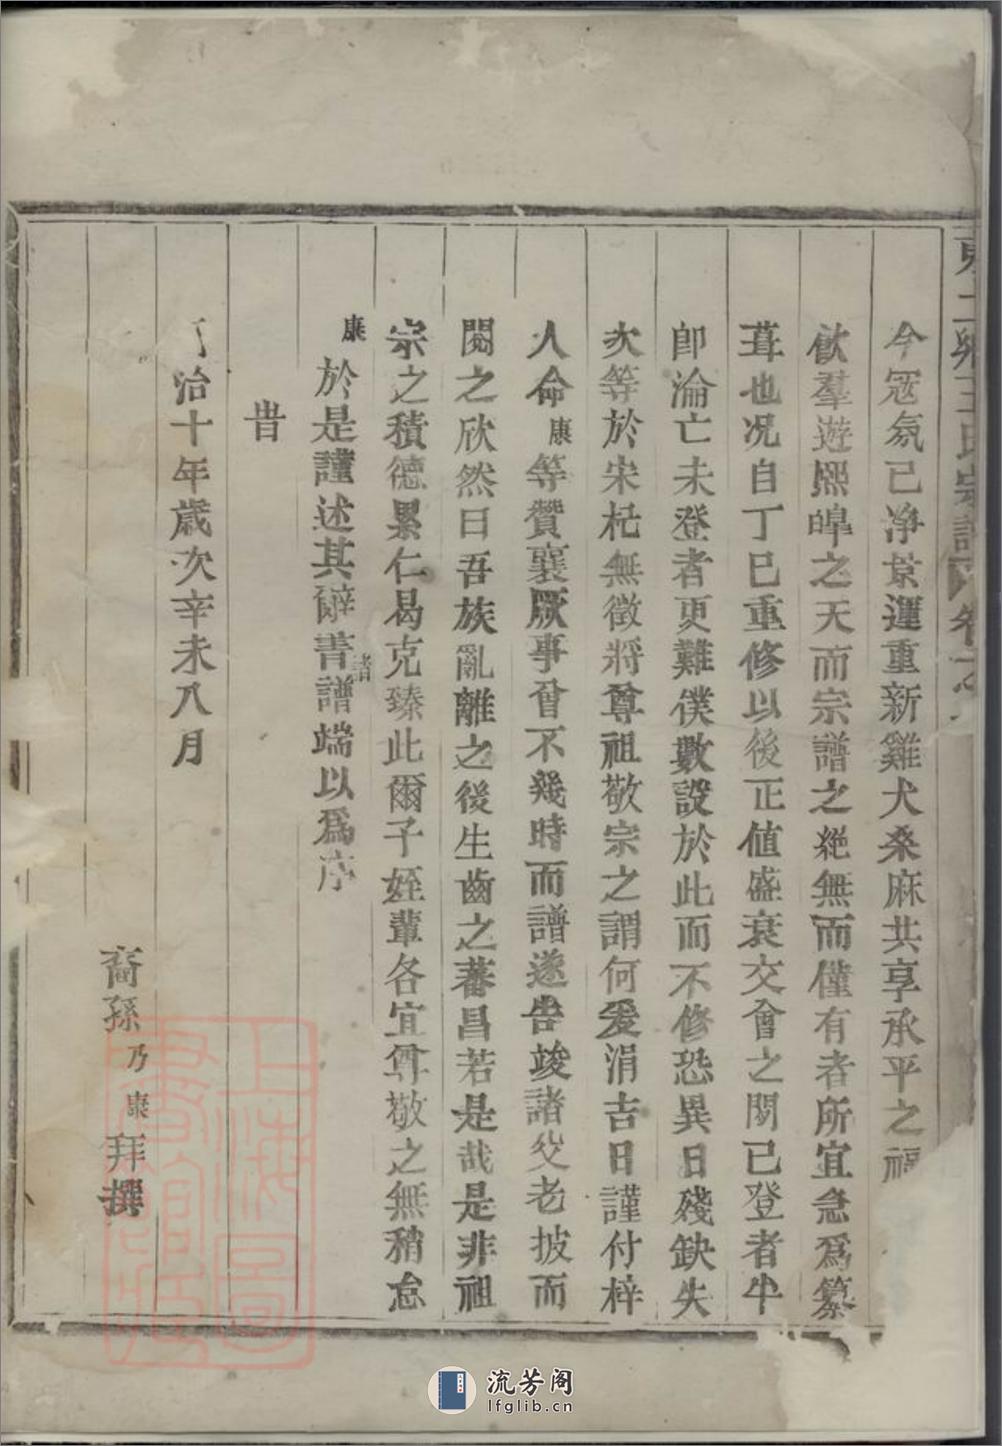 今冦氛已净景運重新雞犬桑麻共享承平之福
飲羣遊熙皥之天而宗譜之絶無而僅有者所宜急爲纂
葺也况自丁巳重修以後正値盛衰交會之閒已登者半
卽淪亡未登者更難僕數設於此而不修恐異日殘缺失
次等於宋杞無徵將尊祖敬宗之謂何爰涓吉日謹付梓
人命康等贊襄厥事曾不幾時而譜遂告竣諸父老披而
閱之欣然曰吾族亂離之後生齒之蕃昌若是哉是非祖
宗之積德累仁曷克臻此爾子姪輩各宜尊敬之無稍怠
康於是謹述其辭書諸譜端以爲序
旹
治十年歲次辛未八月
裔孫乃康拜撰
王氏宗譜 卷之
上海圖書館藏
流芳阁
lfglib.cn